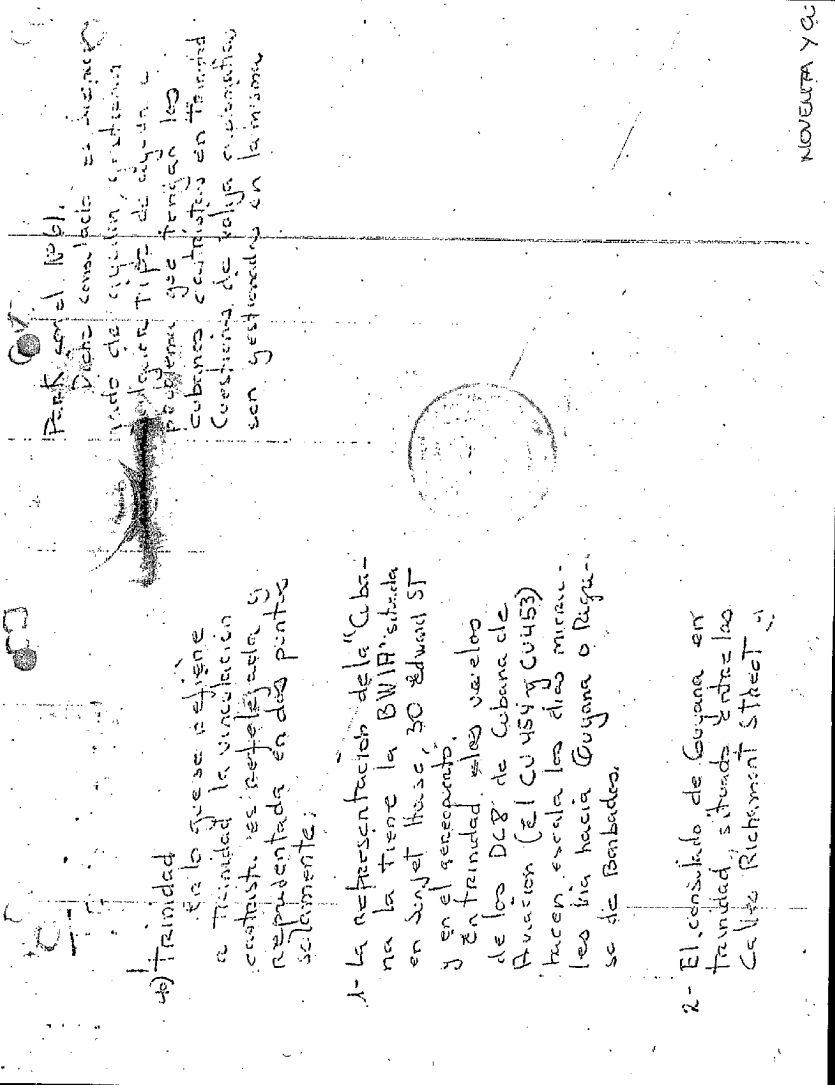 4º) Trinidad
En lo que se refiere
a Trinidad la vinculación
castrista es reflejada y
reprentada en dos puntos
solamente:
1- La representación de la "Cuba-
na la tiene la BWIA" situada
en Sunjet House, 30 Edward ST
y en el aereopuerto.
En trinidad los vuelos
de los DC8 de Cubana de
Aviación (El CU 454 y CU 453)
hacen escala los días mierco-
les vía hacia Guyana o Regre-
so de Barbados.
2- El consulado de Guyana en
trinidad, situado entre las
Calles Richamont Street y
Park con el Nº 61.
Dicho consulado es
gado de
cualquier tipo de ayuda o
problema que tengan los
cubanos castristas en Trinidad
Cuestiones de valija diplomática
son gestionadas en la misma
NOVENTA Y